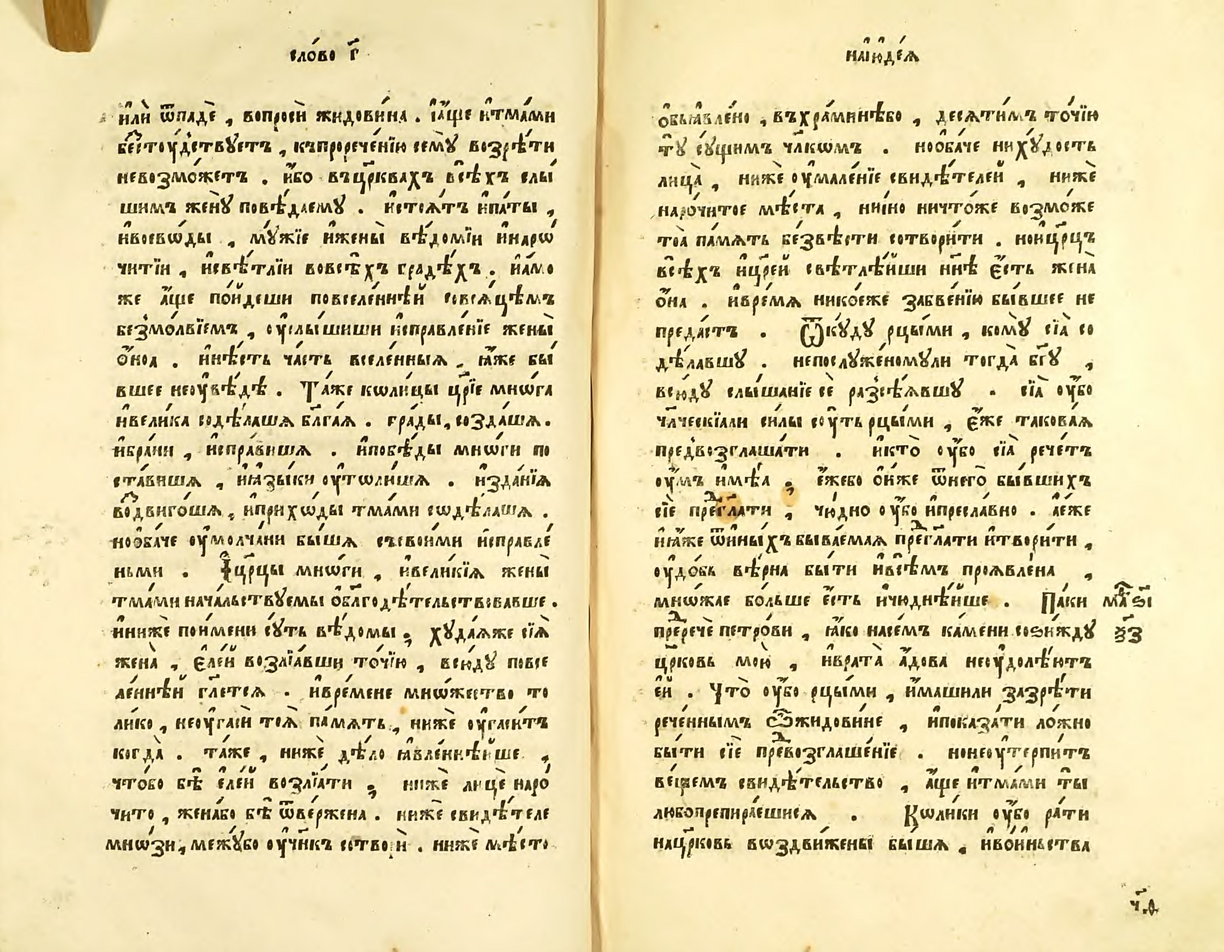 сло́во г҃
и҆лѝ ѿпадѐ , вопросѝ жидови́на . і҆а́ще и҆тма́ми
бесту́дствꙋетъ , къпроречє́нїю семꙋ̀ возрѣ́ти
невозмо́жетъ . и҆́бо въцр҃квахъ всѣ́хъ слы́
шимъ женꙋ̀ повѣ́даемꙋ . и҆стоѧ́тъ и҆па́ты ,
и҆воево́ды , мꙋ́жїе и҆жены̀ вѣ́домїи и҆наро́
чи́тїи , и҆свѣ́тлїи вовсѣ́хъ градѣ́хъ . и҆а́мо
же а҆́ще по́йдеши повселе́ннѣй совсѧ́цѣмъ
безмо́лвїемъ , ᲂу҆слы́шиши и҆справле́нїе жены̀
ѻ҆́ноѧ . и҆нѣ́сть ча́сть вселе́нныѧ , ꙗ҆́же бы́
вшее неᲂувѣ́дѣ . Та́же кѡли́цы цр҃їе мнѡ́га
и҆вели́ка содѣ́лашѧ бл҃га́ѧ . гра́ды, созда́шѧ .
и҆бра́ни , и҆спра́вишѧ . и҆побѣ́ды мнѡ́ги по
ста́вишѧ , и҆ꙗ҆зы́ки ᲂу҆толи́шѧ . и҆зда́нїѧ
воздви́гошѧ , и҆прихѡ́ды тма́ми сѡдѣ́лашѧ .
но́ѻбаче ᲂу҆молча́ни бы́шѧ съсвои́ми и҆справле́
ньми . И҆цр҃цы мнѡ́ги , и҆вели́кїѧ жены̀
тма́ми нача́льствꙋемы ѻ҆благодѣ́тельствовавше .
и҆нижѐ поимени сꙋ́ть вѣ́домы , хꙋда́ѧже сїѧ̀
жена̀ , є҆ле́й возлїѧ́вши то́чїю , всю́дꙋ повсе
ле́ннѣй гл҃етсѧ . и҆вре́мене мно́жество то
ли́ко , неᲂугасѝ тоѧ̀ па́мѧть , нижѐ ᲂу҆гаси́тъ
когда̀ . та́же , нижѐ дѣ́ло ꙗ҆вле́ннѣйше ,
что́бо бѣ̀ є҆ле́й возлїѧ́ти , нижѐ лицѐ наро
чи́то , жена́бо бѣ̀ ѿве́ржена . нижѐ свидѣ́теле
мно́зи, межꙋ́бо ᲂу҆чн҃къ сотворѝ . нижѐ мѣ́сто
наїюде́ѧ
ѻ҆бꙗвле́но , въхра́минѣбо , десѧти́мъ то́чїю
тꙋ̀ сꙋ́щимъ чл҃кѡмъ . но́ѻбаче нихꙋ́дость
лица̀ , нижѐ ᲂу҆мале́нїе свидѣ́телей , нижѐ
нарочи́тое мѣ́ста , нии́но ничто́же возмо́же
тоѧ̀ па́мѧть безвѣ́сти сотвори́ти . нои҆цр҃цъ
всѣ́хъ и҆цр҃е́й свѣтлѣ́йши нн҃ѣ є҆́сть жена̀
ѻ҆́на . и҆вре́мѧ нико́еже забве́нїю бы́вшее не
преда́стъ . Ѿкꙋ́дꙋ рцы́ми , комꙋ̀ сїѧ̀ со
дѣ́лавшꙋ . непослꙋ́женомꙋли тогда̀ бг҃ꙋ ,
всю́дꙋ слы́шанїе сѐ разсѣ́ѧвшꙋ . сїѧ̀ ᲂу҆́бо
чл҃ческїали си́лы сꙋ́ть рцы́ми , є҆́же такова́ѧ
предвозглаша́ти . и҆кто̀ ᲂу҆́бо сїѧ̀ рече́тъ
ᲂу҆́мъ и҆мѣ́ѧ , є҆́жебо ѻ҆ни́же ѿнего̀ бы́вшихъ
сїѐ прегл҃ати , чю́дно ᲂу҆́бо и҆пресла́вно . а҆е́же
и҆ꙗ҆́же ѿи́ныхъ быва́емаѧ прегл҃ати и҆твори́ти ,
ᲂу҆до́бь вѣ́рна бы́ти и҆всѣ́мъ проꙗвле́на ,
мно́жае бо́льше є҆́сть и҆чюднѣ́йше . Па́ки
мѳ҃аѕ҃і
ѯ҃з
преречѐ петро́ви , ꙗ҆́ко насе́мъ ка́мени сози́ждꙋ
цр҃ковь мою̀ , и҆врата̀ а҆́дова неᲂудолѣ́ютъ
є҆́й . Что̀ ᲂу҆́бо рцы́ми , и҆́машили зазрѣ́ти
рече́ннымъ ѽжидови́не , и҆показа́ти ло́жно
бы́ти сїѐ превозглаше́нїе . нонеᲂуте́рпитъ
ве́щемъ свидѣ́тельство , а҆́ще и҆тма́ми ты̀
любопрепира́ешисѧ . Кѡли́ки ᲂу҆́бо ра́ти
нацр҃ковь воздви́жены бы́шѧ , и҆во́иньства